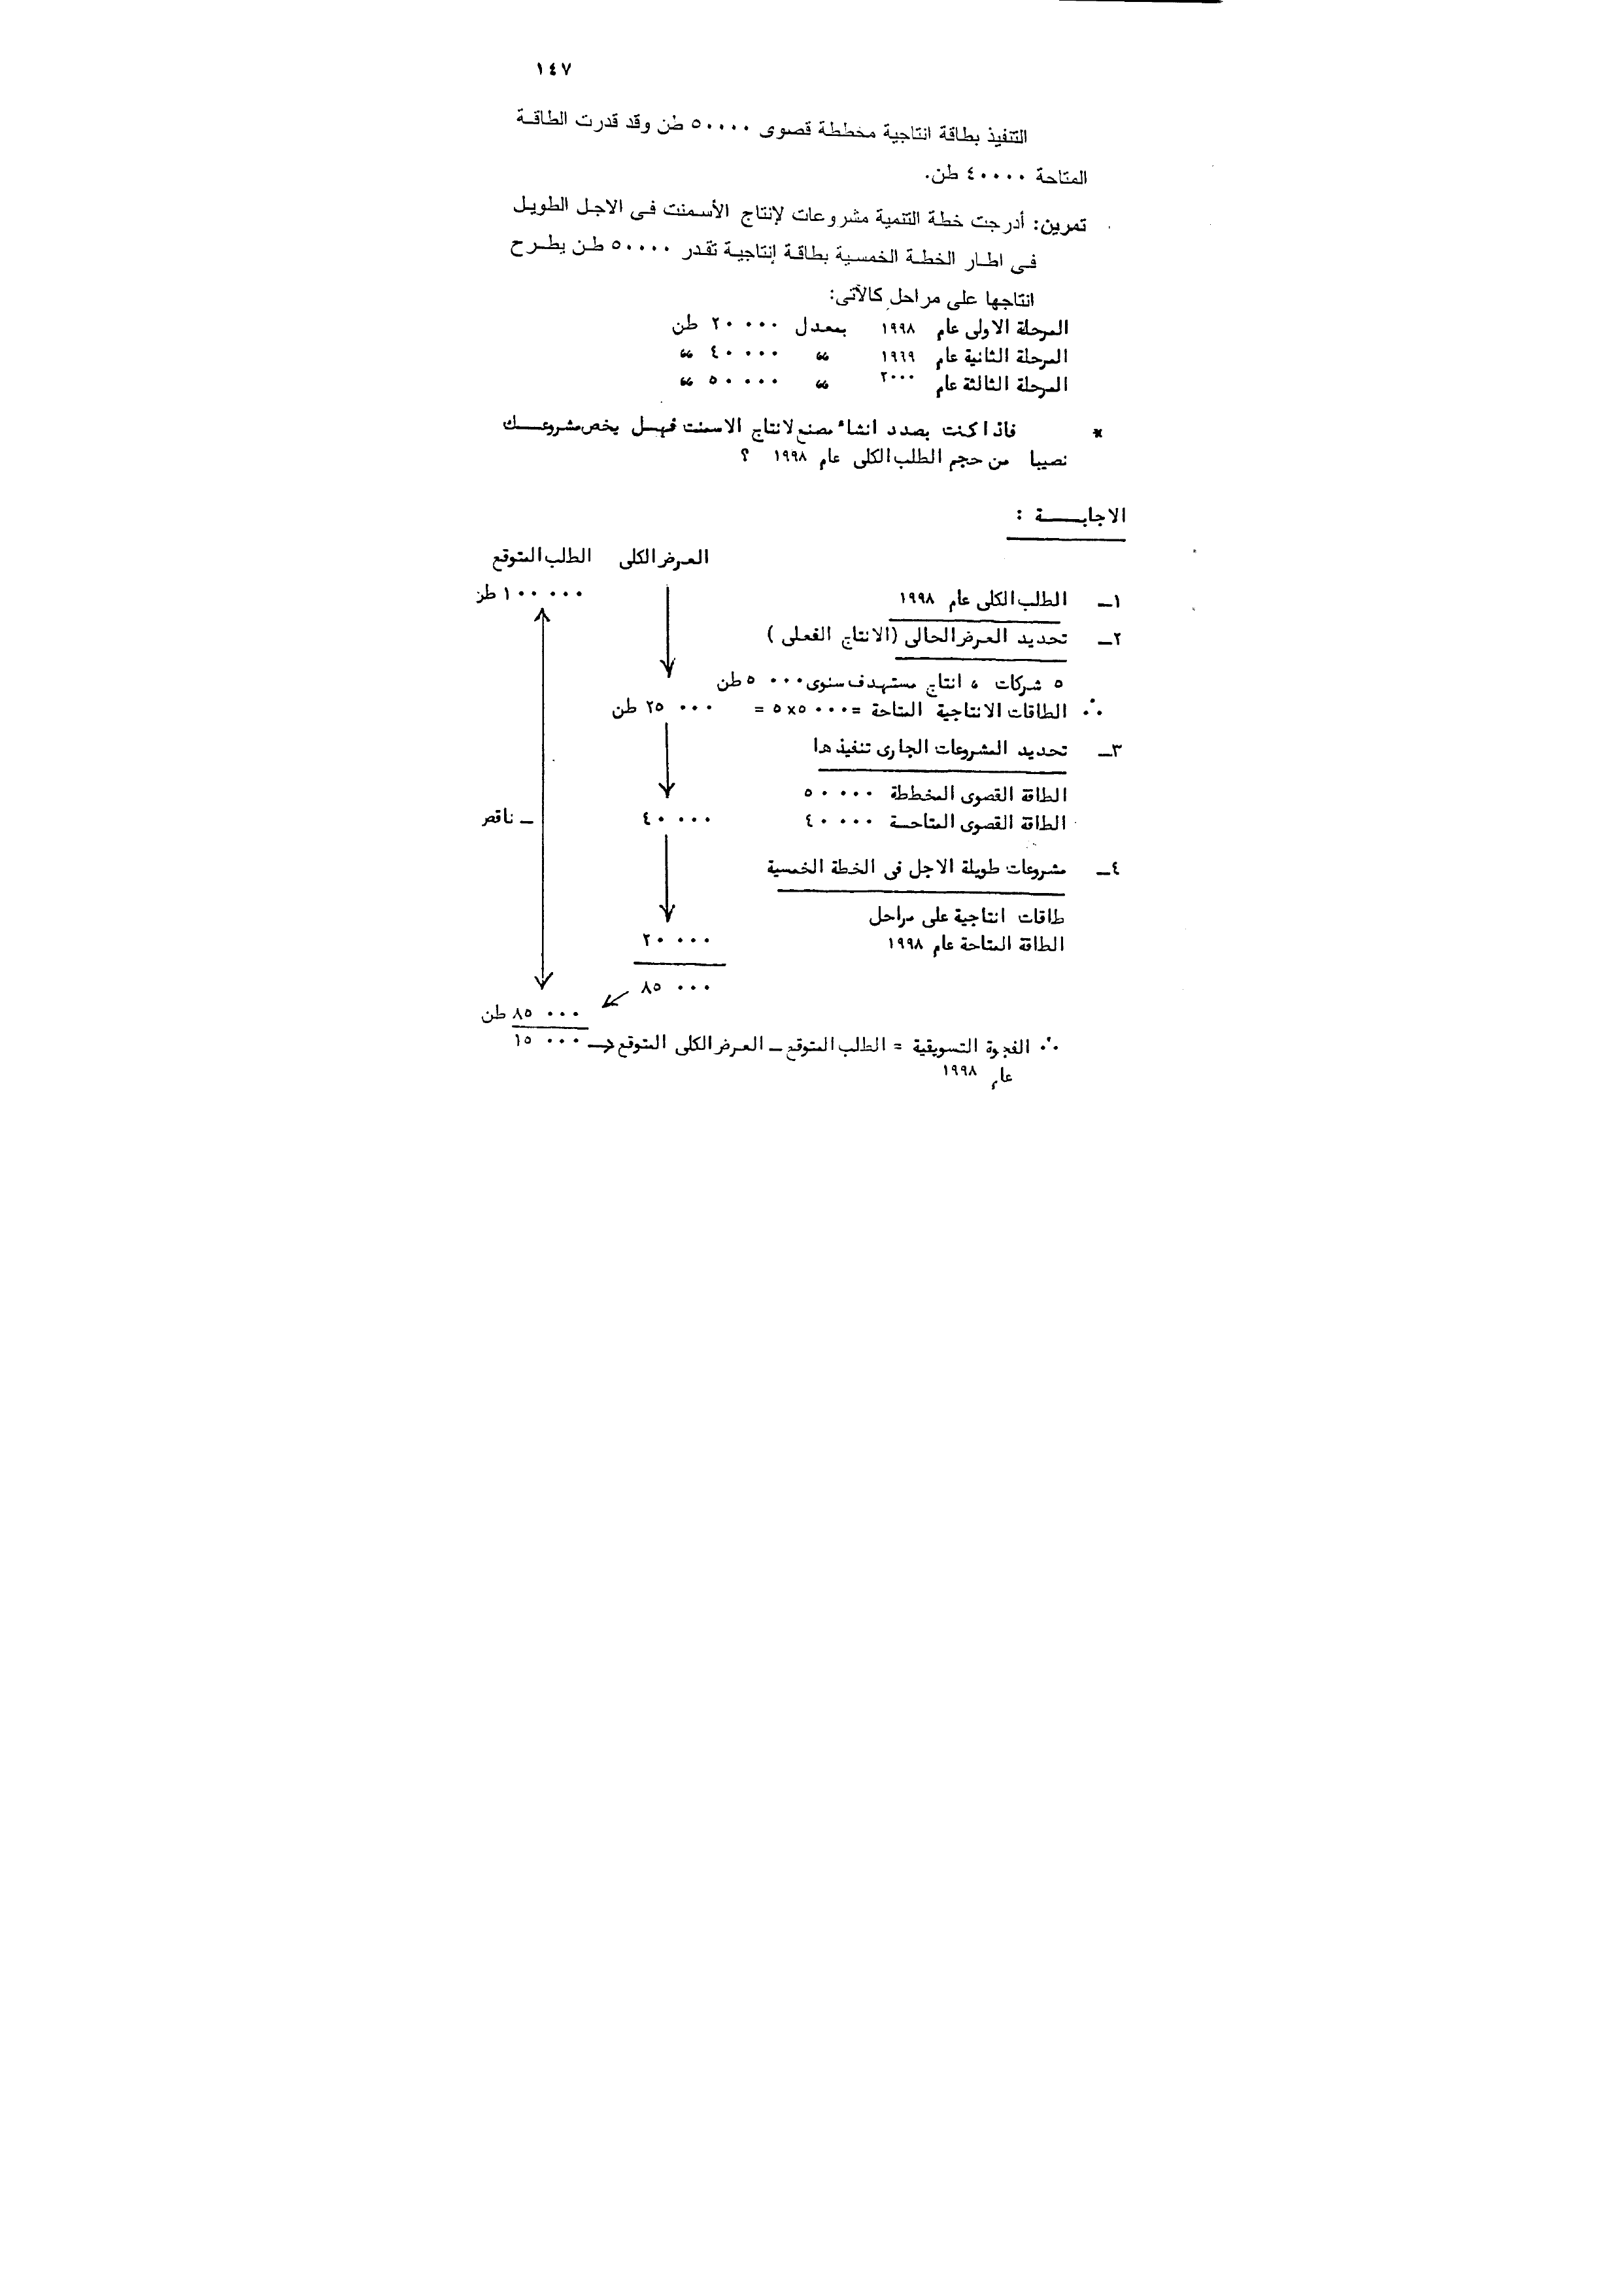 ١٤٧
التنفيذ بطاقة انتاجية مخططة قصوى ٥٠٠٠٠ طن وقد قدرت الطاقة
المتاحة ٤٠٠٠٠ طن.
تمرين: أدرجت خطة التنمية مشروعات لإنتاج الأسمنت فى الاجل الطويل
فى اطار الخطة الخمسية بطاقة إنتاجية تقدر ٥٠٠٠٠ طن يطرح
انتاجها على مراحل كالآتى:
المرحلة الاولى عام ١٩٩٨ بمعدل ٢٠٠٠٠ طن
المرحلة الثانية عام ١٩٦٩ “ ٤٠٠٠٠ “
المرحلة الثالثة عام ٢٠٠٠ “ ٥٠٠٠٠ “
* فاذا كنت بصدد انشاء مصنع لانتاج الاسمنت فهل يخص مشروعك
نصيبا من حجم الطلب الكلى عام ١٩٩٨ ؟
الاجابة :
العرض الكلى الطلب المتوقع
١ـ الطلب الكلى عام ١٩٩٨ ١٠٠٠٠٠ طن
٢ـ تحديد العرض الحالى (الانتاج الفعلى )
٥ شركات ، انتاج مستهدف سنوى ٥٠٠٠ طن
∴ الطاقات الانتاجية المتاحة = ٥٠٠٠×٥ = ٢٥٠٠٠ طن
٣ـ تحديد المشروعات الجارى تنفيذها
الطاقة القصوى المخططة ٥٠٠٠٠
الطاقة القصوى المتاحة ٤٠٠٠٠ ٤٠٠٠٠ ـ ناقص
٤ـ مشروعات طويلة الاجل فى الخطة الخمسية
طاقات انتاجية على مراحل
الطاقة المتاحة عام ١٩٩٨ ٢٠٠٠٠
٨٥٠٠٠
٨٥٠٠٠ طن
∴ الفجوة التسويقية = الطلب المتوقع ـ العرض الكلى المتوقع ١٥٠٠٠
عام ١٩٩٨